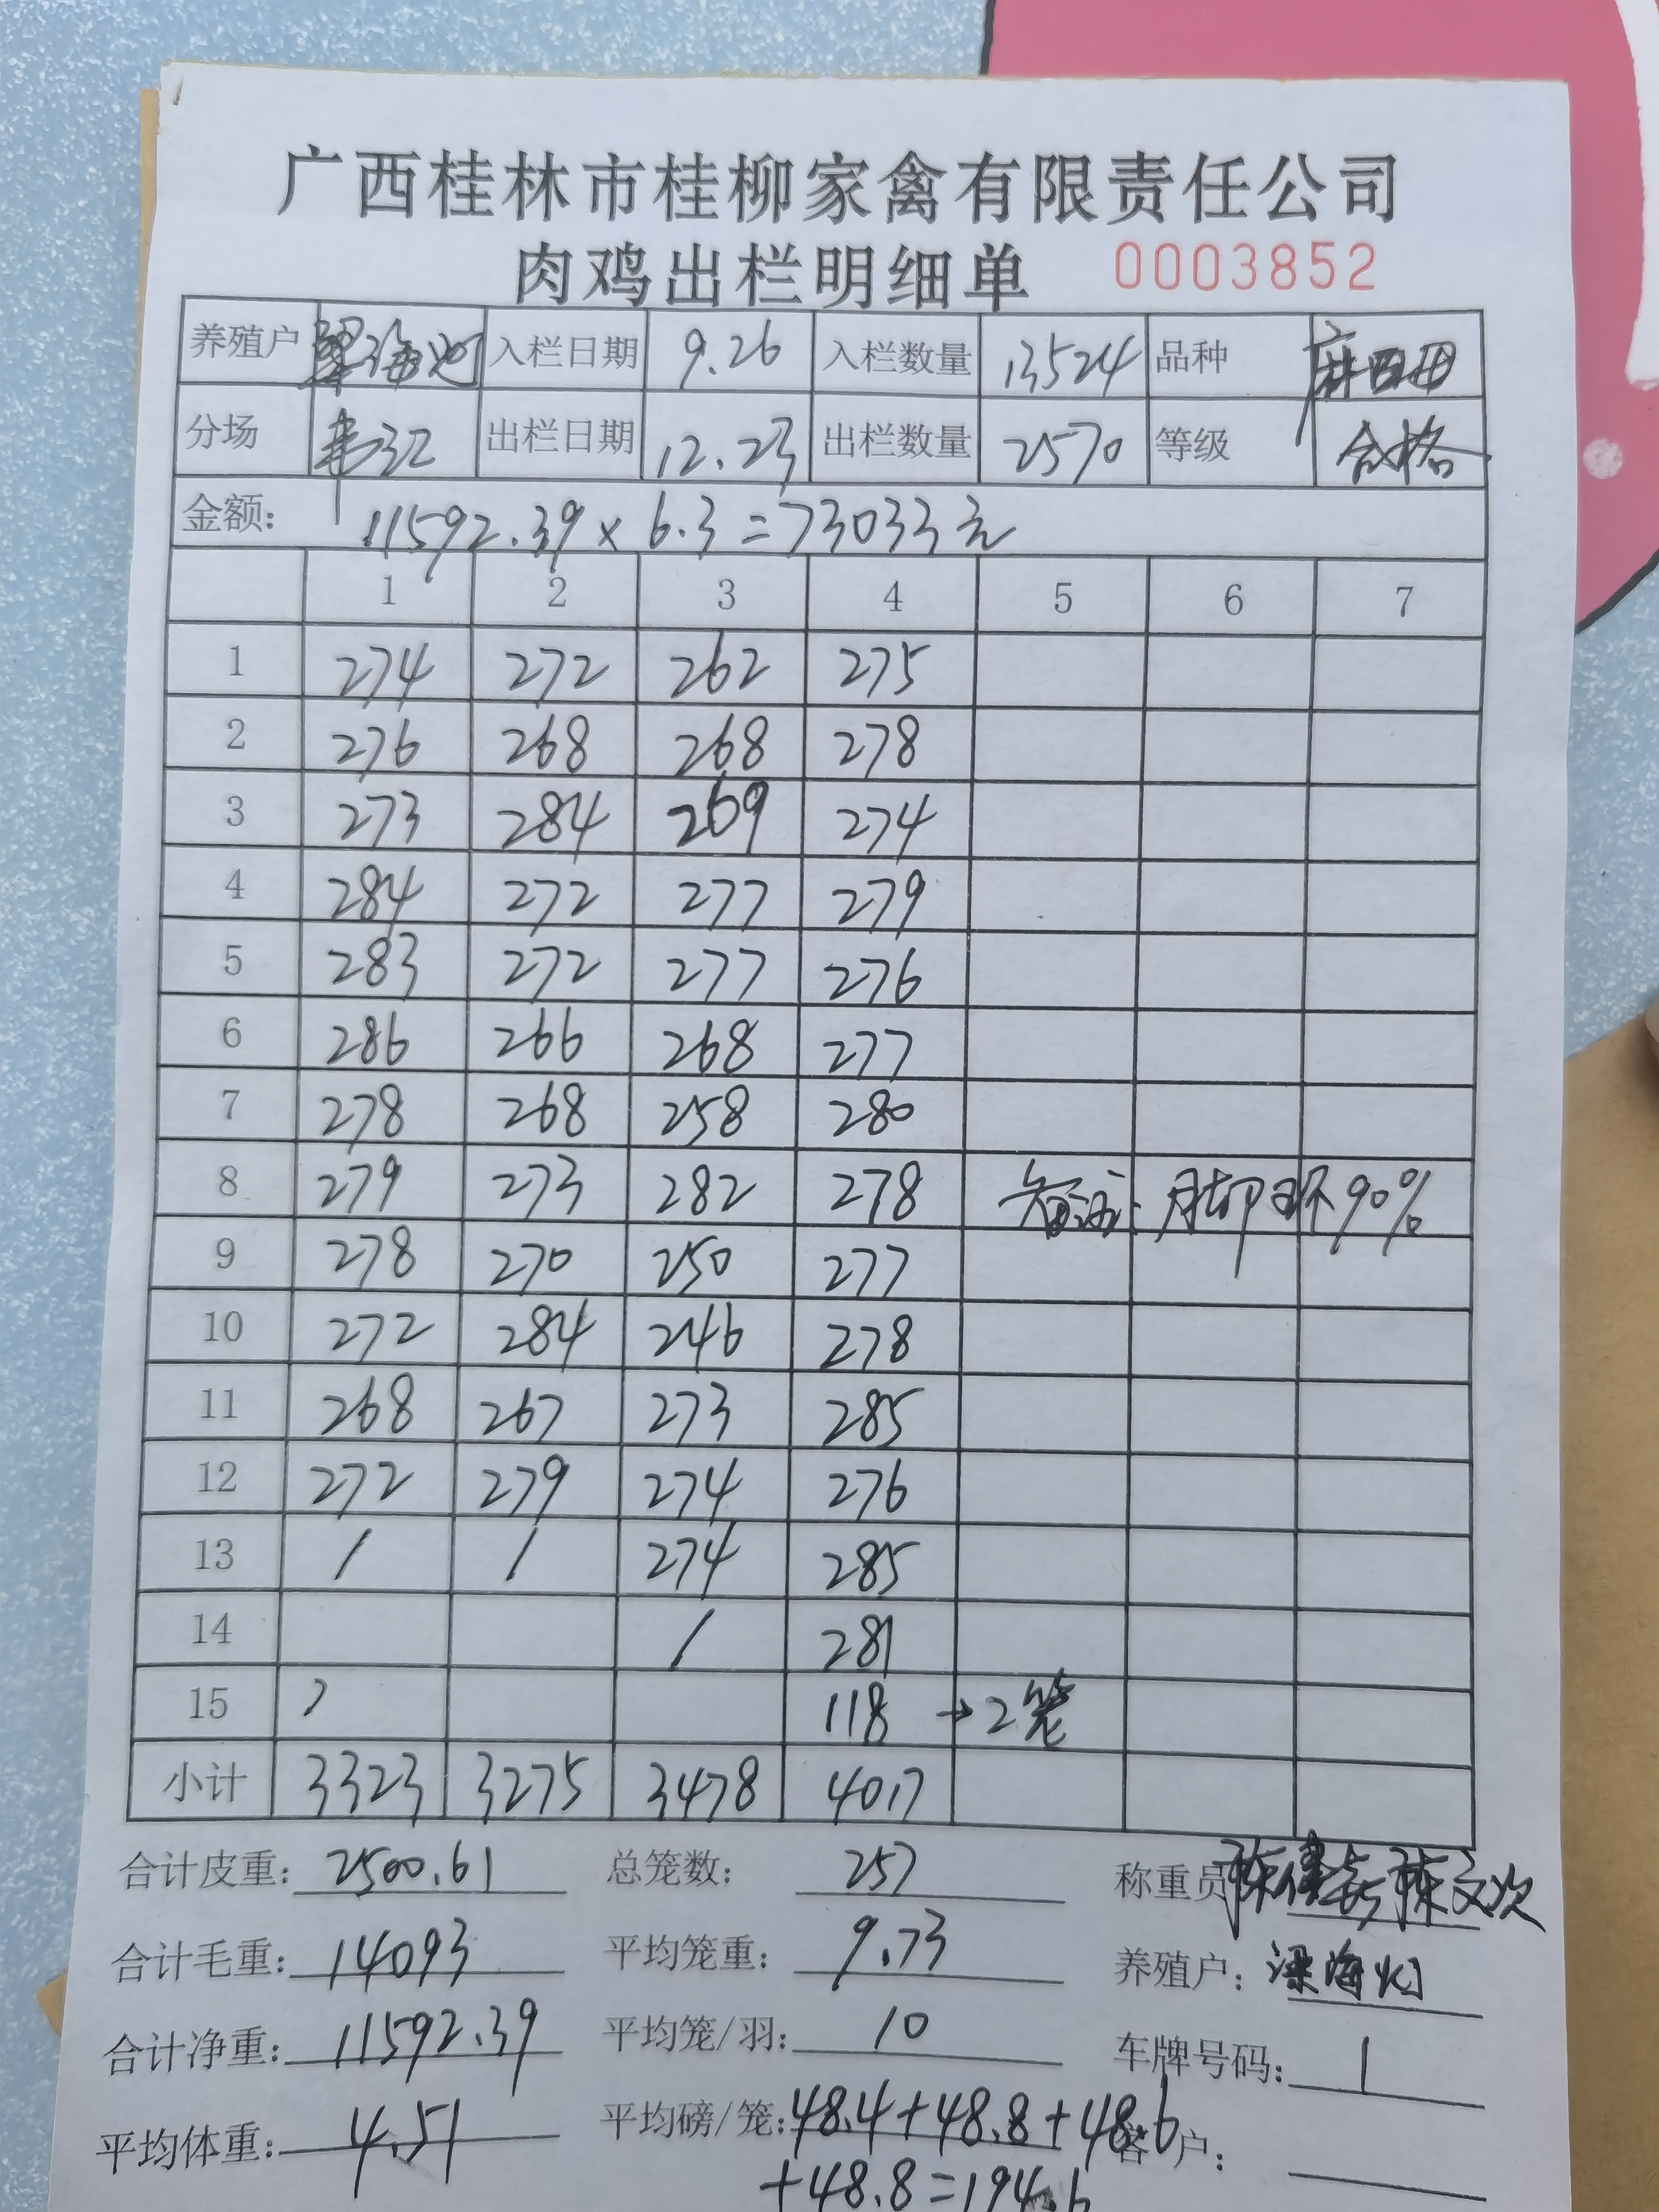 广西桂林市桂柳家禽有限责任公司
肉鸡出栏明细单 0003852
养殖户 梁海 入栏日期 9.26 入栏数量 13524 品种 麻
分场 韦32 出栏日期 12.23 出栏数量 2570 等级 合格
金额: 11592.39×6.3=73033元
1 2 3 4 5 6 7
1 274 272 262 275
2 276 268 268 278
3 273 284 269 274
4 284 272 277 279
5 283 272 277 276
6 286 266 268 277
7 278 268 258 280
8 279 273 282 278 备注: 脚环90%
9 278 270 250 277
10 272 284 246 278
11 268 267 273 285
12 272 279 274 276
13 / / 274 285
14 / 281
15 118 →2笼
小计 3323 3275 3478 4017
合计皮重: 2500.61 总笼数: 257 称重员
合计毛重: 14093 平均笼重: 9.73 养殖户: 梁海
合计净重: 11592.39 平均笼/羽: 10 车牌号码: 1
平均体重: 4.51 平均磅/笼: 48.4+48.8+48.6 客户:
+48.8=194.6